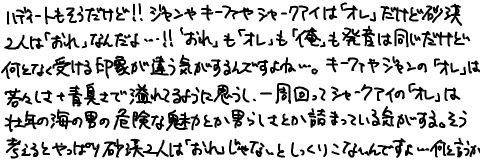 ハディートもそうだけど!! ジャンやキーファやシャークアイは「オレ」だけど砂漠
2人は「おれ」なんだよ…!! 「おれ」も「オレ」も「俺」も発音は同じだけど
何となく受ける印象が違う気がするんですよね…。キーファやジャンの「オレ」は
若々しさ+青臭さで溢れてるように思うし、一周回ってシャークアイの「オレ」は
壮年の海の男の危険な魅力とか男らしさとか詰まっている気がする。そう
考えるとやっぱり砂漠2人は「おれ」じゃないとしっくりこないんですよ…何を言うか